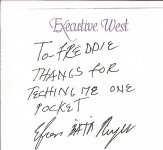 Executive West
To FREDDIE
THANGS FOR
TECHING ME ONE
POCKET
Efren